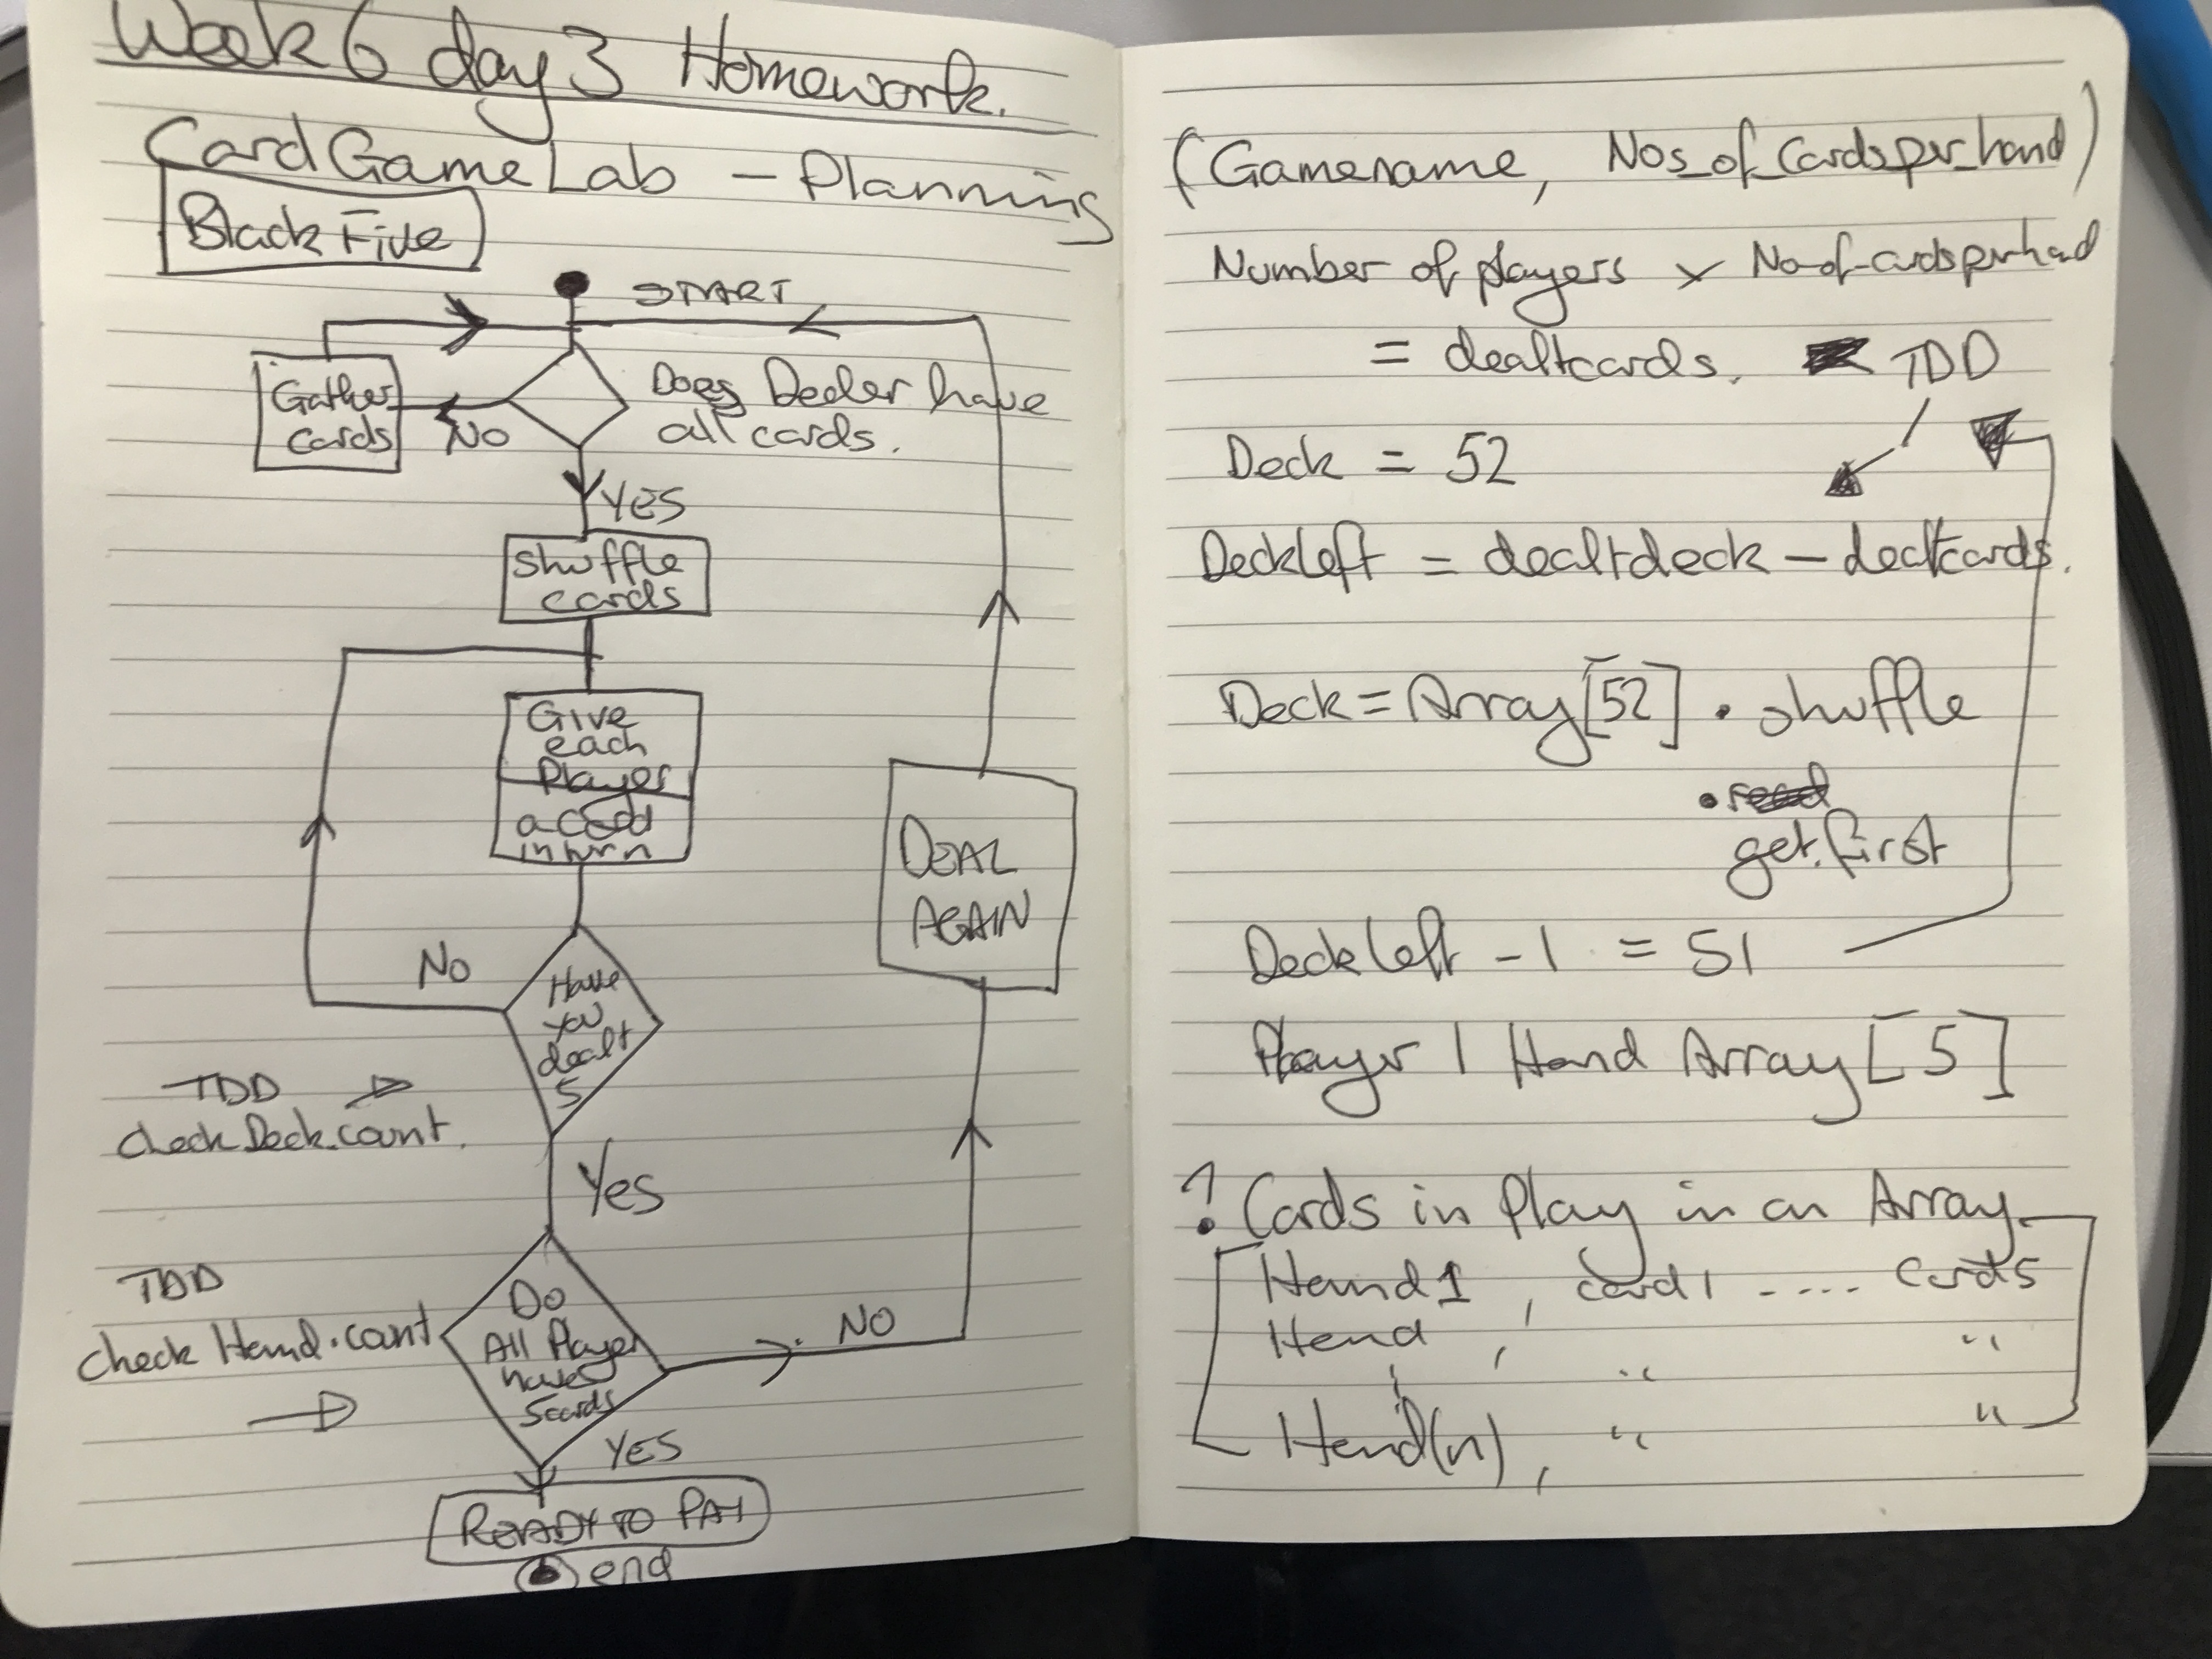 Week 6 day 3 Homework.
Card Game Lab - Planning
Black Five
START
Gather
cards
No
Does Dealer have
all cards.
YES
shuffle
cards
Give
each
Player
a card
in turn
DEAL
AGAIN
No
Have
you
dealt
5
TDD
check Deck.count.
Yes
TDD
check Hand.count
Do
All Player
have
5 cards
NO
YES
READY TO PAY
end
(Gamename, Nos_of_Cardsper_hand)
Number of players x No-of-cardsperhad
= dealtcards.
TDD
Deck = 52
Deckleft = dealtdeck - dealtcards.
Deck = Array[52] . shuffle
.read
get.first
Deckleft - 1 = 51
Player 1 Hand Array [5]
? Cards in Play in an Array
Hand 1 , card 1 ---- cards
Hend , " "
Hend(n), " "